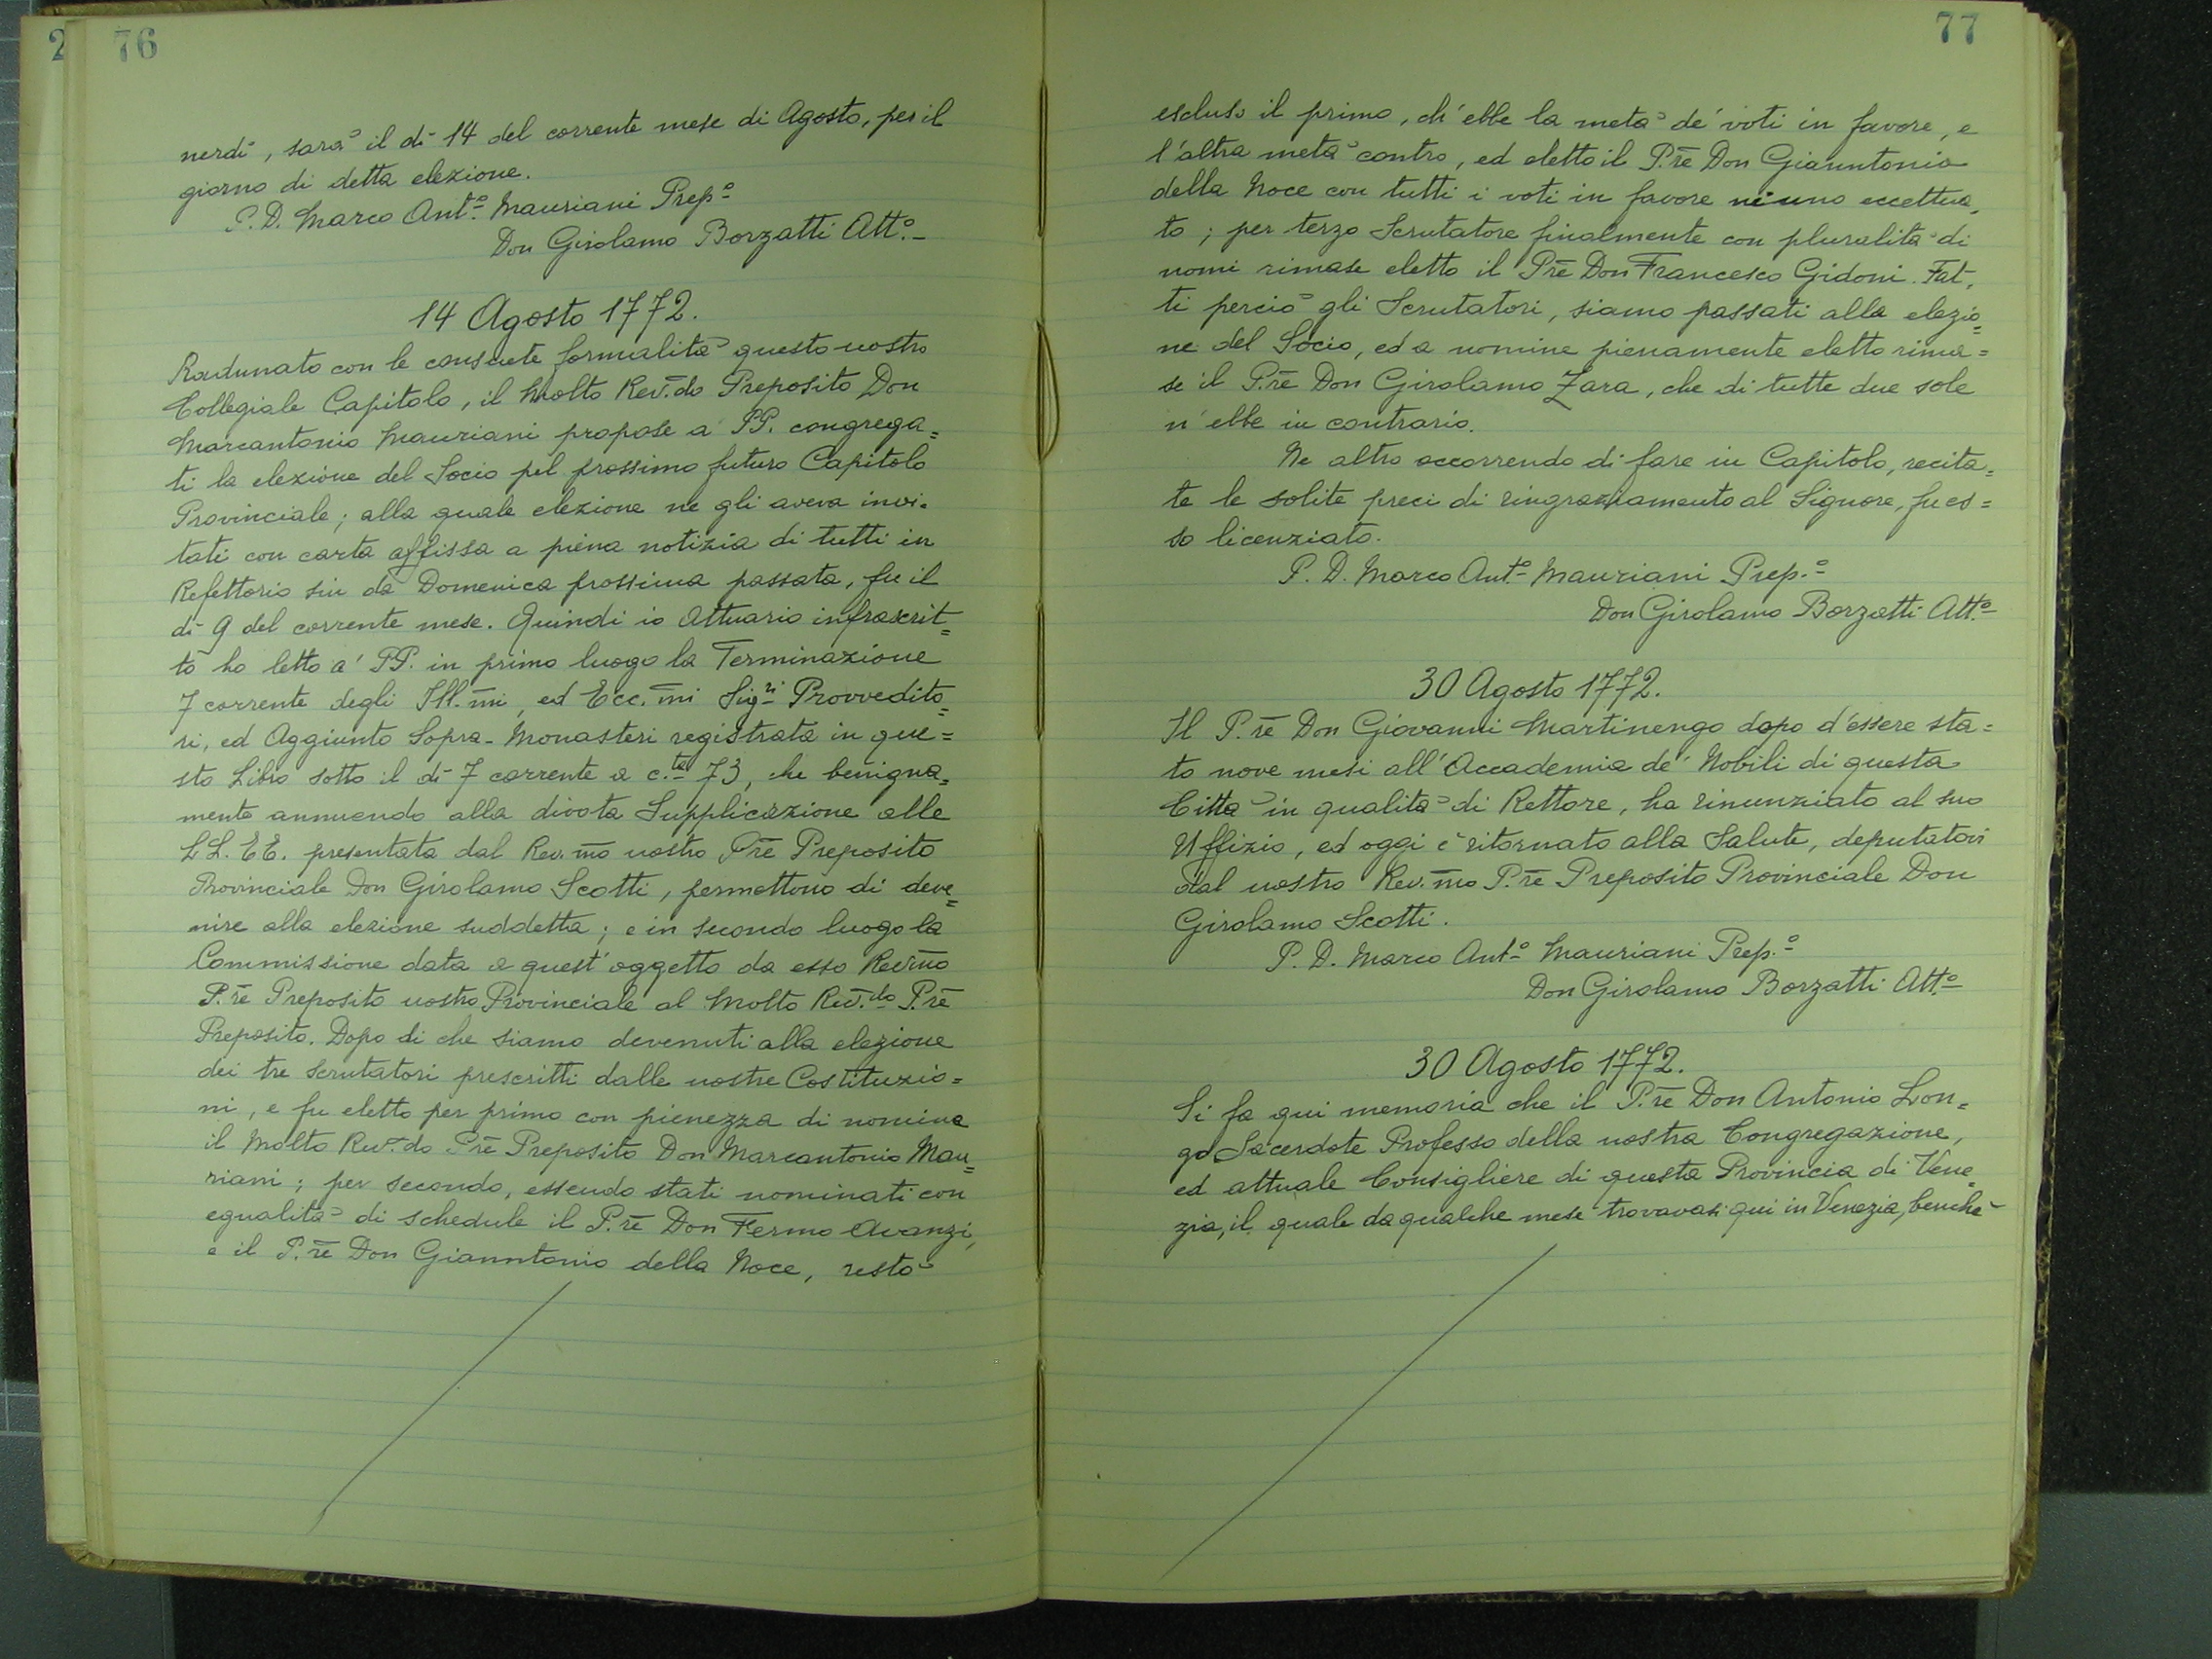 2
76
nerdì, sarà il dì 14 del corrente mese di Agosto, per il
giorno di detta elezione.
P. D. Marco Ant.º Mauriani Prep.º
Don Girolamo Borzatti Att.º
14 Agosto 1772.
Radunato con le consuete formalità questo nostro
Collegiale Capitolo, il Molto Rev.do Preposito Don
Marcantonio Mauriani propose a' PP. congrega=
ti la elezione del Socio pel prossimo futuro Capitolo
Provinciale; alla quale elezione ne gli aveva invi=
tati con carta affissa a piena notizia di tutti in
Refettorio sin da Domenica prossima passata, fu il
dì 9 del corrente mese. Quindi io Attuario infrascrit=
to ho letto a' PP. in primo luogo la Terminazione
7 corrente degli Ill.mi, ed Ecc.mi Sig.ri Provvedito=
ri, ed Aggiunto Sopra-Monasteri registrata in que=
sto Libro sotto il dì 7 corrente a c.te 73, che benigna=
mente annuendo alla divota Supplicazione alle
LL. EE. presentata dal Rev.mo nostro Prē Preposito
Provinciale Don Girolamo Scotti, permettono di deve=
nire alla elezione suddetta; e in secondo luogo la
Commissione data a quest'oggetto da esso Rev.mo
P.rē Preposito nostro Provinciale al Molto Rev.do P.rē
Preposito. Dopo di che siamo devenuti alla elezione
dei tre scrutatori prescritti dalle nostre Costituzio=
ni, e fu eletto per primo con pienezza di nomina
il Molto Rev.do Prē Preposito Don Marcantonio Mau=
riani; per secondo, essendo stati nominati con
egualità di schedule il P.rē Don Fermo Avanzi,
e il P.rē Don Gianntonio della Noce, restò
77
escluso il primo, ch'ebbe la metà de' voti in favore, e
l'altra metà contro, ed eletto il P.rē Don Gianntonio
della Noce con tutti i voti in favore niuno eccettua=
to; per terzo Scrutatore finalmente con pluralità di
nomi rimase eletto il Prē Don Francesco Gidoni. Fat=
ti perciò gli Scrutatori, siamo passati alla elezio=
ne del Socio, ed a nomine pienamente eletto rima=
se il P.rē Don Girolamo Zara, che di tutte due sole
n'ebbe in contrario.
Ne altro occorrendo di fare in Capitolo, recita=
te le solite preci di ringraziamento al Signore, fu es=
so licenziato.
P. D. Marco Ant.º Mauriani Prep.º
Don Girolamo Borzatti Att.º
30 Agosto 1772.
Il P.rē Don Giovanni Martinengo dopo d'essere sta=
to nove mesi all'Accademia de' Nobili di questa
Città in qualità di Rettore, ha rinunziato al suo
Uffizio, ed oggi è ritornato alla Salute, deputatovi
dal nostro Rev.mo P.rē Preposito Provinciale Don
Girolamo Scotti.
P. D. Marco Ant.º Mauriani Prep.º
Don Girolamo Borzatti Att.º
30 Agosto 1772.
Si fa qui memoria che il P.rē Don Antonio Lon=
go Sacerdote Professo della nostra Congregazione,
ed attuale Consigliere di questa Provincia di Vene=
zia, il quale da qualche mese trovavasi qui in Venezia, benchè